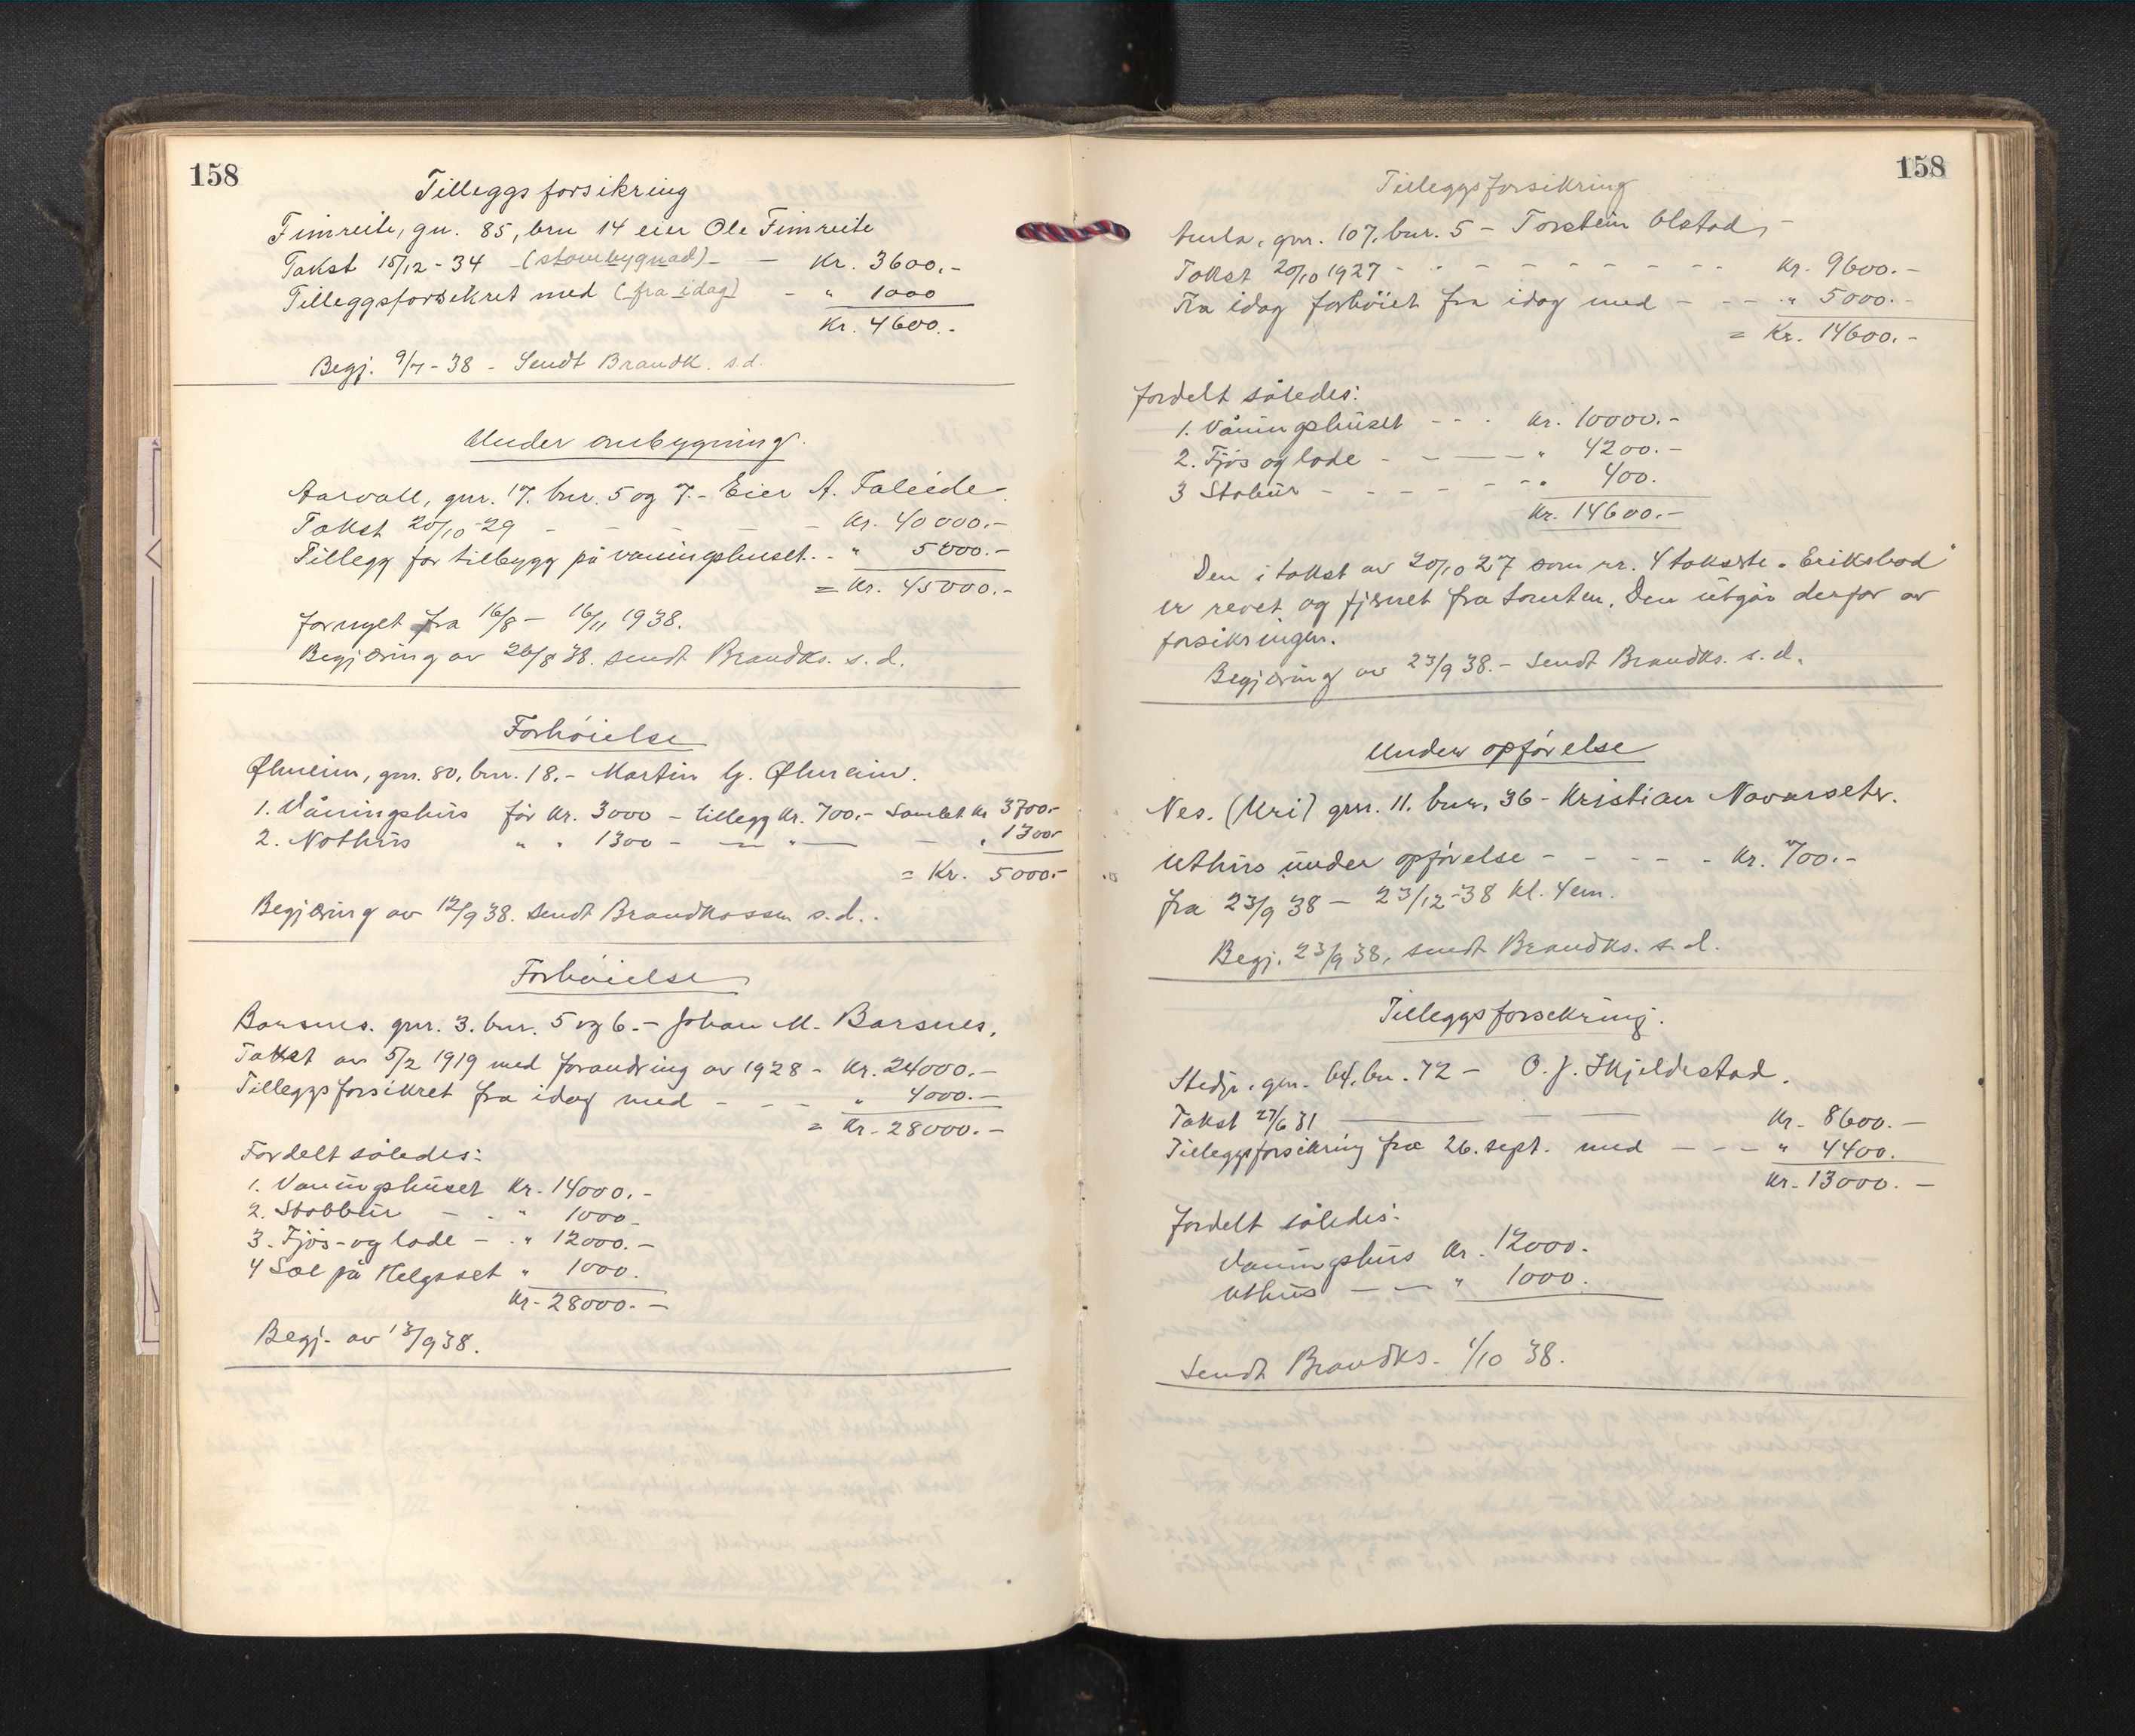 158
Tilleggsforsikring
Fimreite, gn. 85, brn 14 eier Ole Fimreite
Takst 15/12-34 - (stovebygnad) - - Kr. 3600.-
Tilleggsforsikret med (fra idag) - " 1000
Kr. 4600.-
Begj. 9/7-38 - Sendt Brandk. s.d.
Under ombygning.
gnr. 17. bnr. 5 og 7.- Eier A. Faleide.
Takst 20/10-29 - - - - - - Kr. 40000.-
Tillegg for tilbygg på vaningshuset. - " 5000.-
= Kr. 45000.-
fornyet fra 16/8 - 16/11 1938.
Begjæring av 26/8 38. sendt Brandks. s.d.
Forhöielse
gnr. 80, bnr. 18.- Martin G.
1. Våningshus för Kr. 3000 - tillegg Kr. 700.- Samlet Kr 3700.-
2. Nothus " " 1300 - — " — - " 1300-
= Kr. 5000.-
Begjæring av 12/9 38. sendt Brandkassen s.d..
Forhöielse
Barsnes. gnr. 3. bnr. 5 og 6.- Johan M. Barsnes.
Takst av 5/2 1919 med forandring av 1928 - Kr. 24000.-
Tilleggsforsikret fra idag med - - - " 4000.-
= Kr. 28000.-
Fordelt således:
1. Vaningshuset Kr. 14000.-
2. Stabbur - - " 1000.-
3. Fjös- og lade - - " 12000.-
4 Sæl på Helgaset " 1000.
Kr. 28000.-
Begj. av 13/9 38.
158
Tilleggsforsikring
gnr. 107. bnr. 5 - Torstein Olstad, -
Takst 20/10 1927 - - - - - - - - - Kr. 9600.-
Fra idag forhöiet fra idag med - - - " 5000.-
= Kr. 14600.-
fordelt således:
1. Våningshuset - - . Kr. 10000.-
2. Fjös og lade - - — - " 4200.-
3 Stabur - - - - - - " 400.
Kr. 14600.-
Den i takst av 20/10 27 som nr. 4 takserte "Eriksbad"
er revet og fjernet fra tomten. Den utgår derfor av
forsikringen.
Begjæring av 23/9 38.- Sendt Brandks. s.d.
Under opförelse
Nes. (Kri) gnr. 11. bnr. 36 - Kristian Navarsete.
Uthus under opförelse - - - - - Kr. 700.-
fra 23/9 38 - 23/12-38 kl. 4 em.
Begj. 23/9 38, sendt Brandks. s.d.
Tilleggsforsikring.
Stedje, gnr. 64. bn. 72 - O. J. Skjeldestad.
Takst 27/6 31 — - — Kr. 8600.-
Tilleggsforsikring fra 26. sept. med - - - " 4400.
Kr. 13000.-
fordelt således:
Vaningshus Kr. 12000.
Uthus - - " 1000.
Sendt Brandks. 1/10 38.